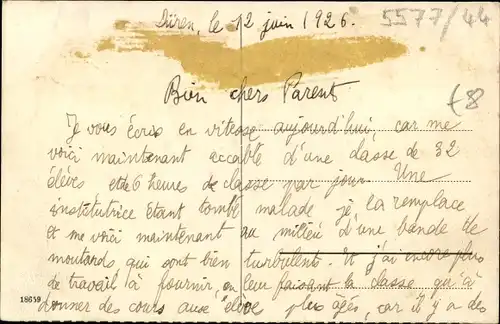 Düren, le 12 juin 1926.
5577/44
€8
Bien chers Parents
Je vous écris en vitesse aujourd'hui, car me
voici maintenant accablé d'une classe de 32
élèves et de 6 heures de classe par jour. Une
institutrice étant tombé malade je la remplace
et me voici maintenant au milieu d'une bande de
moutards qui sont bien turbulents. Et j'ai encore plus
de travail à fournir, en leur faisant la classe qu'à
donner des cours aux élèves plus âgés, car il y a des
18659